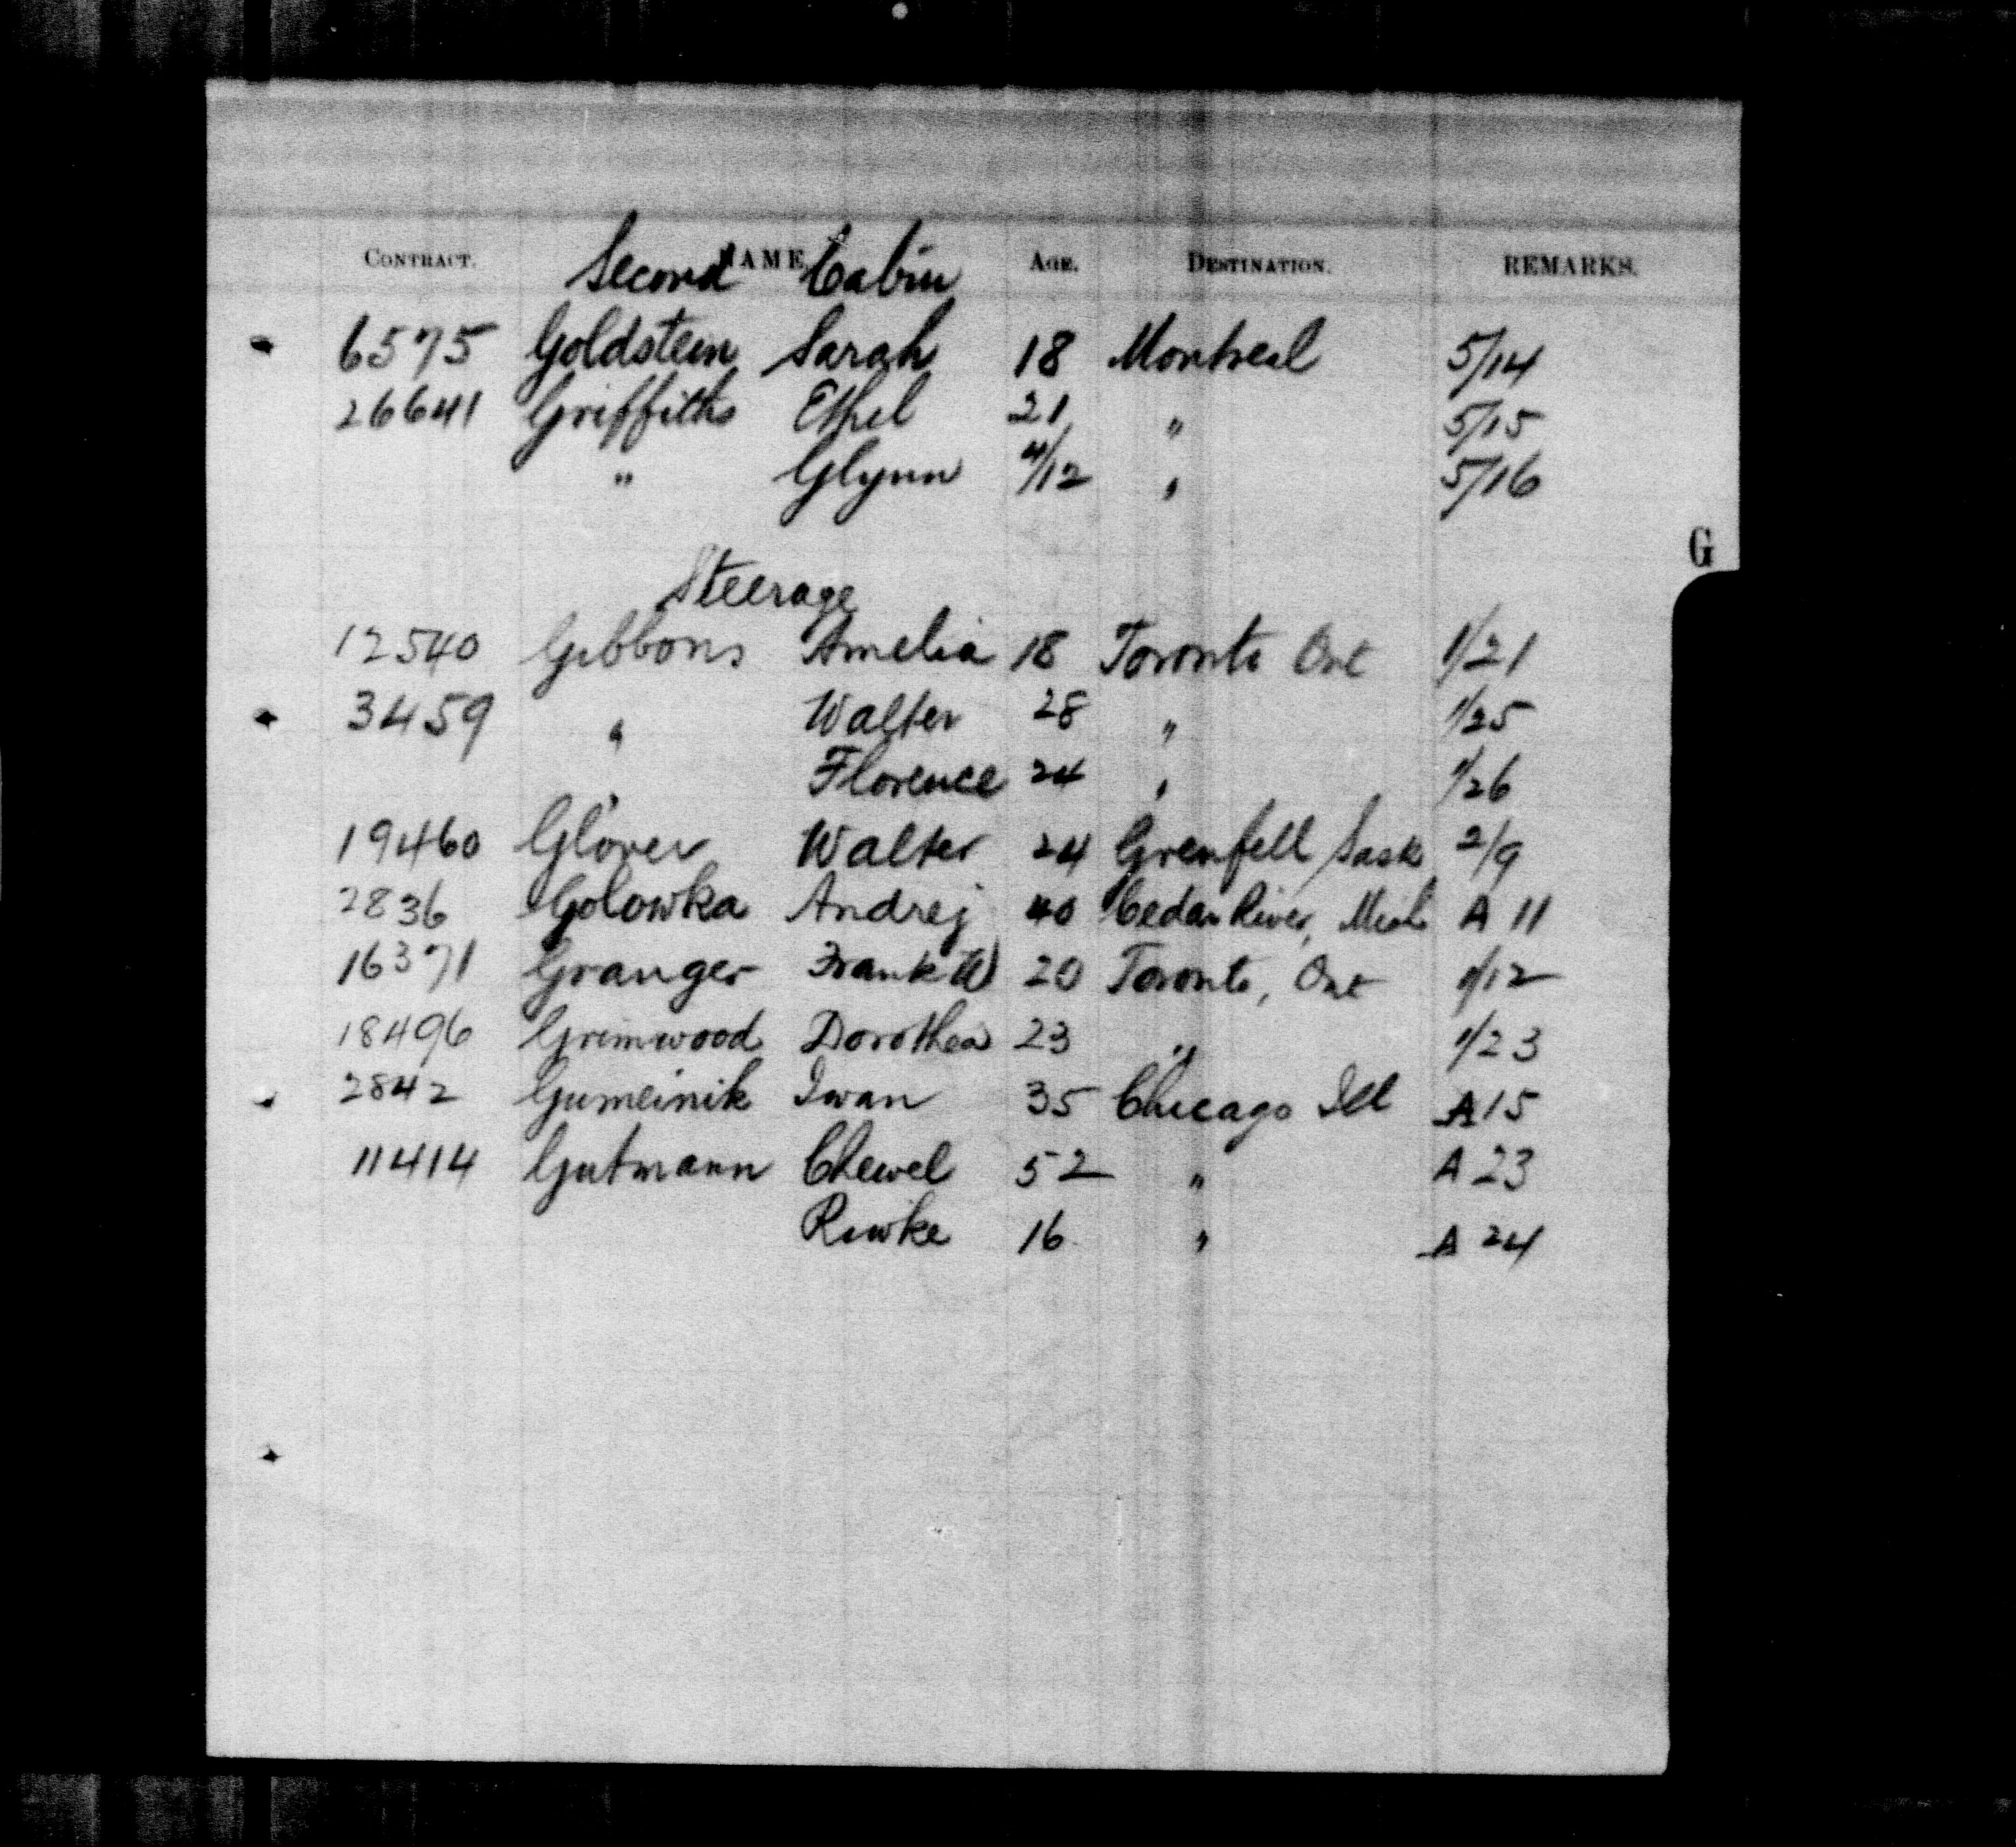 CONTRACT. NAME AGE. DESTINATION. REMARKS.
Second Cabin
6575 Goldstein Sarah 18 Montreal 5/14
26641 Griffiths Ethel 21 " 5/15
" Glynn 4/12 " 5/16
G
Steerage
12540 Gibbons Amelia 18 Toronto Ont 1/21
3459 " Walter 28 " 1/25
" Florence 24 " 1/26
19460 Glover Walter 24 Grenfell Sask 2/9
2836 Golowka Andrej 40 Cedar River, Mich A 11
16371 Granger Frank W 20 Toronto, Ont 1/12
18496 Grimwood Dorothea 23 " 1/23
2842 Gumeinik Iwan 35 Chicago Ill A 15
11414 Gutmann Chewel 52 " A 23
Riwke 16 " A 24